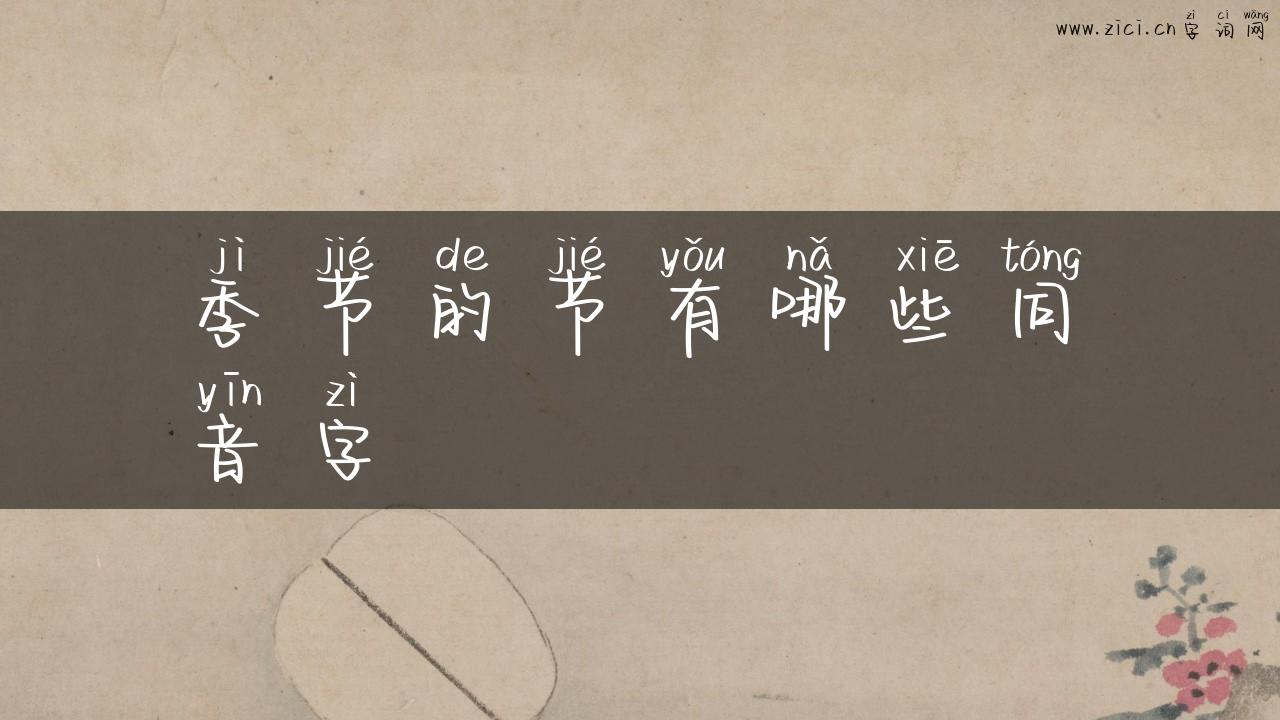 zì cí wǎng
www.zici.cn 字词网
jì jié de jié yǒu nǎ xiē tóng
季节的节有哪些同
yīn zì
音字